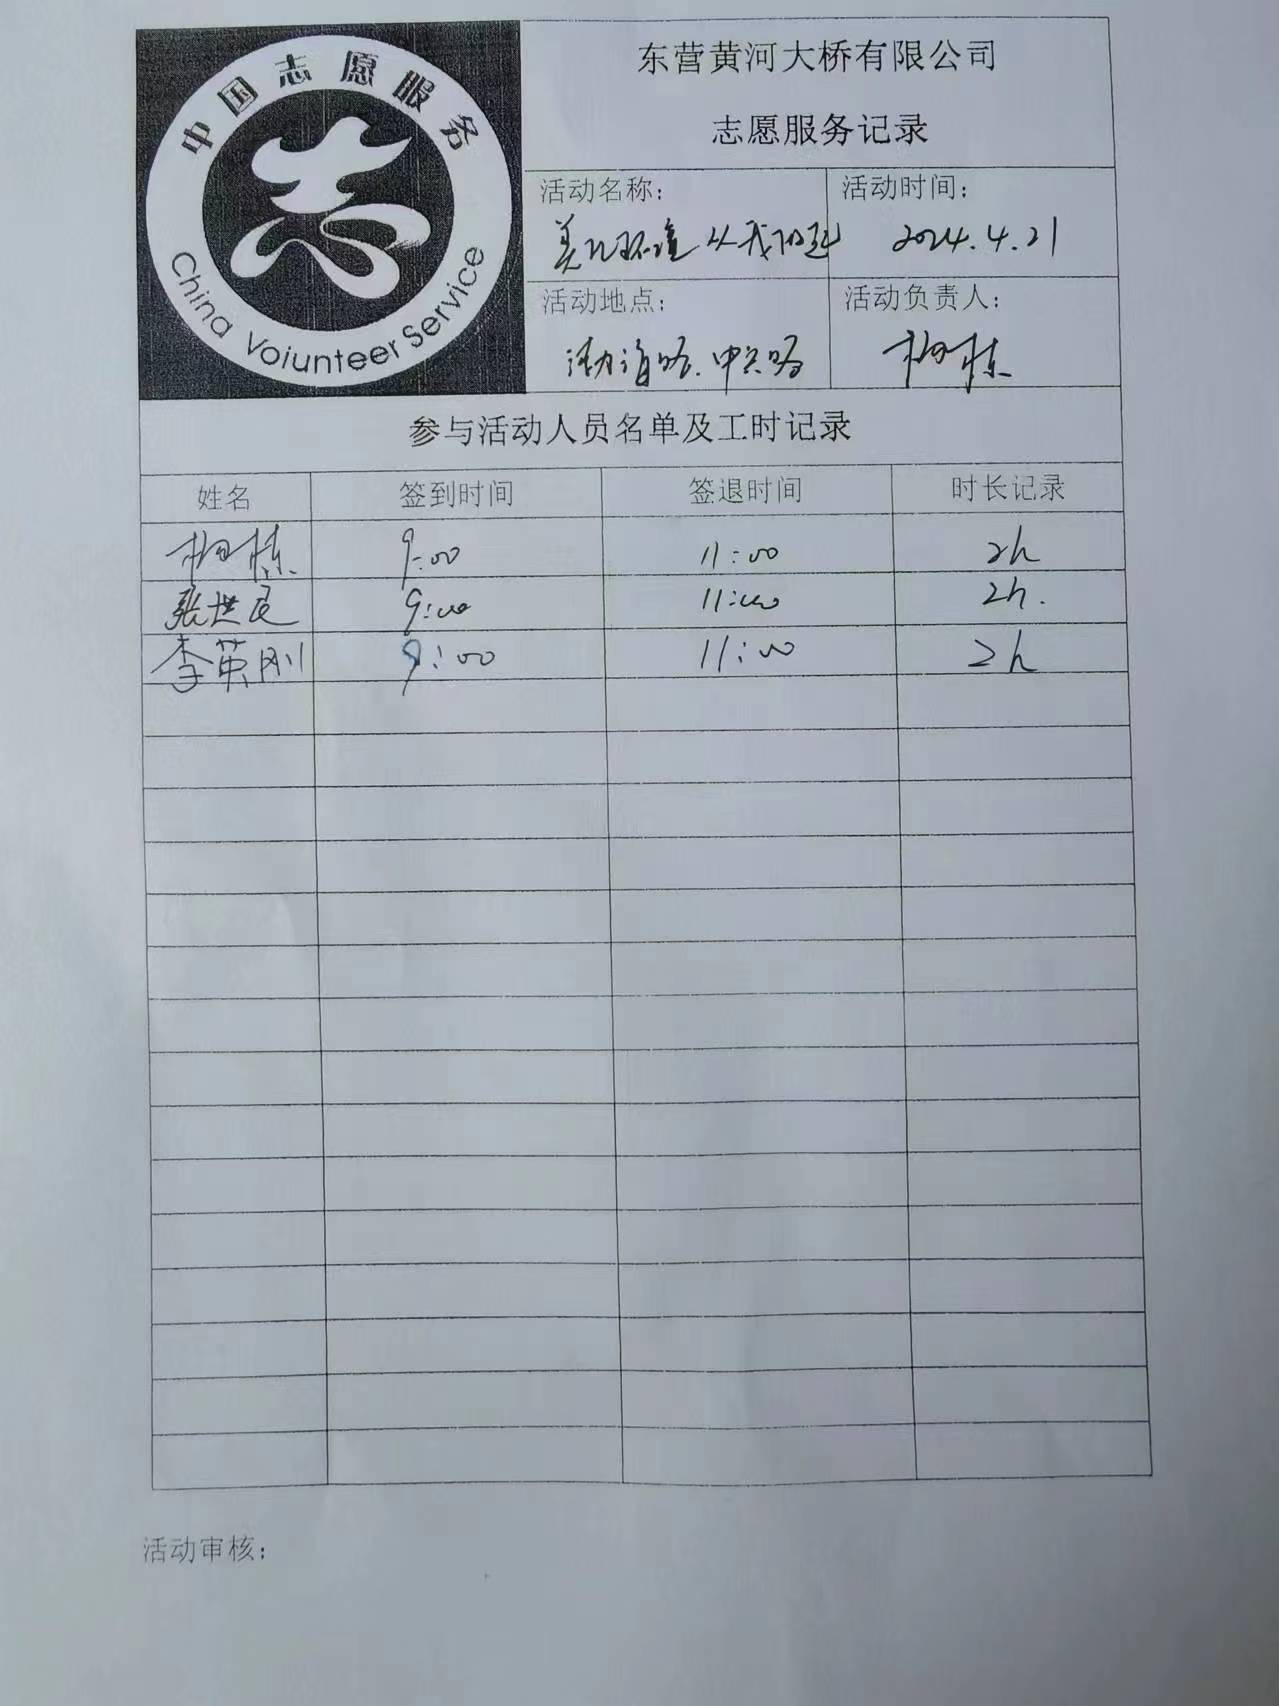 中国志愿服务
China Voiunteer Service
东营黄河大桥有限公司
志愿服务记录
活动名称：
美化环境 从我做起
活动时间：
2024.4.21
活动地点：
渤海路.中兴路
活动负责人：
柳栋
参与活动人员名单及工时记录
姓名 签到时间 签退时间 时长记录
柳栋 9:00 11:00 2h
张世良 9:00 11:00 2h.
李英刚 9:00 11:00 2h
活动审核：